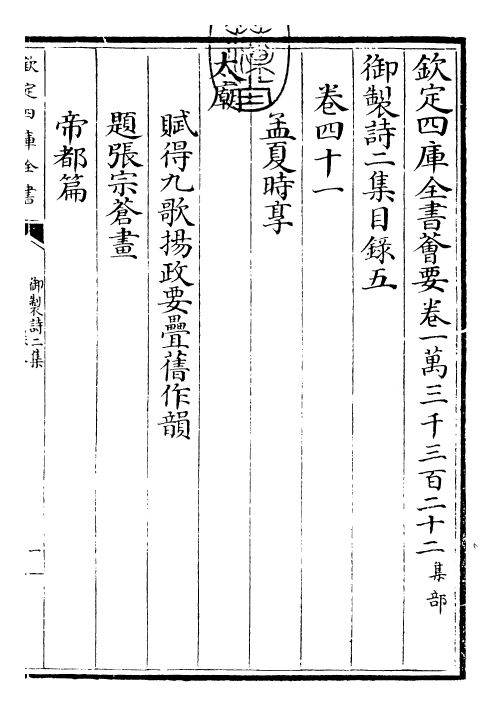 欽定四庫全書薈要卷一萬三千三百二十二 集部
御製詩二集目錄五
卷四十一
孟夏時享
太廟
賦得九歌揚政要疊舊作韻
題張宗蒼畫
帝都篇
欽定四庫全書
御製詩二集
一